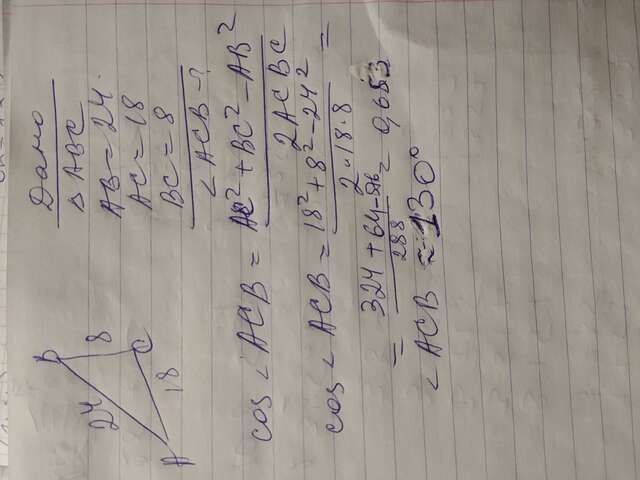 Дано
△ABC
AB=24.
AC=18
BC=8
∠ACB-?
B
8
24
C
18
A
cos∠ACB = AC²+BC²-AB²
2ACBC
cos∠ACB = 18²+8²-24² =
2·18·8
= 324+64-576 = 0,653
288
∠ACB ≈ 130°